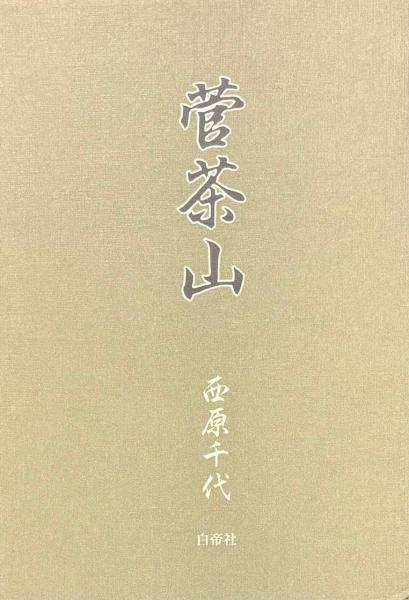 菅茶山
西原千代
白帝社